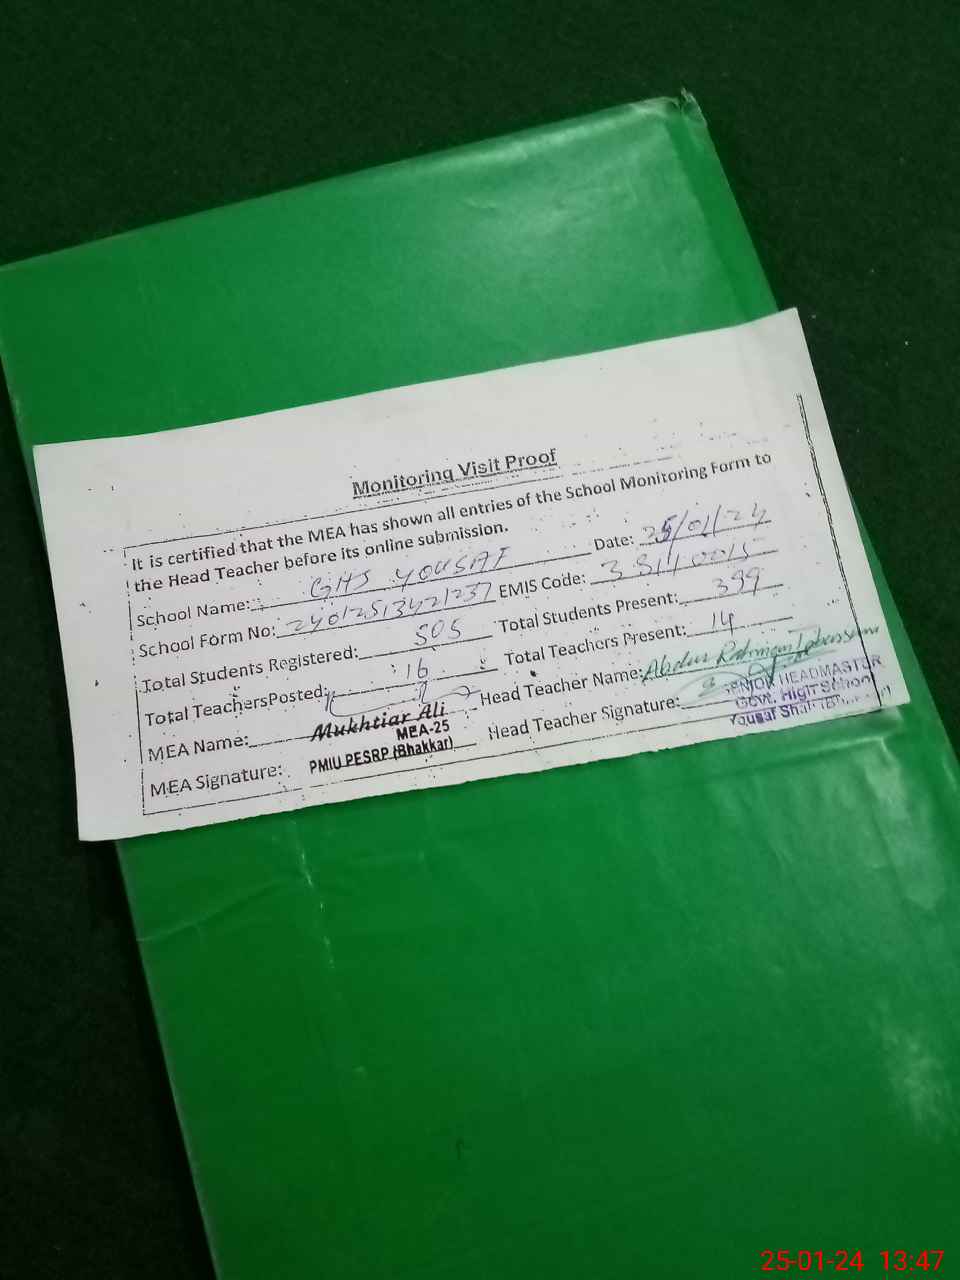 Monitoring Visit Proof
It is certified that the MEA has shown all entries of the School Monitoring Form to
the Head Teacher before its online submission.
School Name: GHS YOUSAF Date: 25/01/24
School Form No: 24012513421237 EMIS Code: 38110015
Total Students Registered: 505 Total Students Present: 399
Total TeachersPosted: 16 Total Teachers Present: 14
MEA Name: Mukhtiar Ali Head Teacher Name: Abdur Rahman Tabassum
MEA-25
MEA Signature: PMIU PESRP (Bhakkar) Head Teacher Signature:
SENIOR HEADMASTER
Govt. High School
Yousaf Shah
25-01-24 13:47